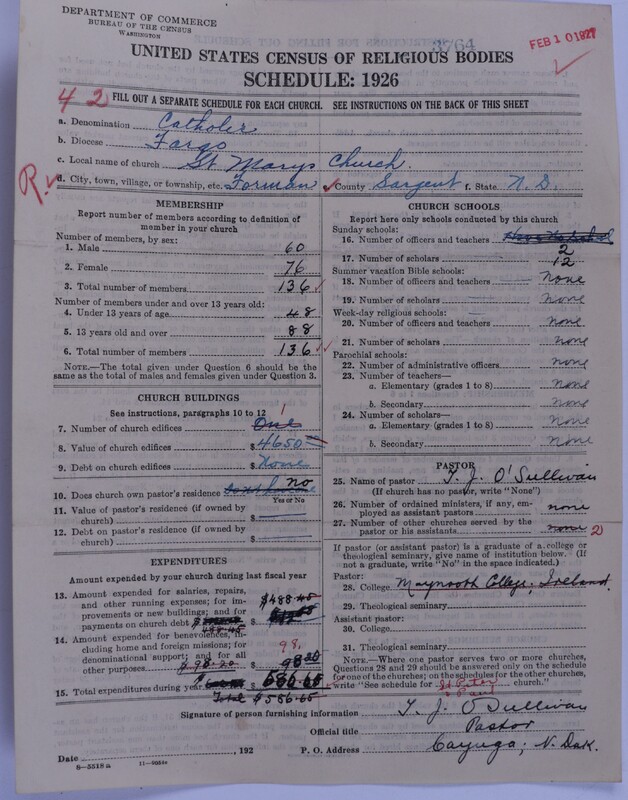 DEPARTMENT OF COMMERCE
BUREAU OF THE CENSUS
WASHINGTON
3764
FEB 10 1927
UNITED STATES CENSUS OF RELIGIOUS BODIES
SCHEDULE: 1926
42 FILL OUT A SEPARATE SCHEDULE FOR EACH CHURCH. SEE INSTRUCTIONS ON THE BACK OF THIS SHEET
a. Denomination Catholic
b. Diocese Fargo
c. Local name of church St Marys Church.
R. d. City, town, village, or township, etc. Forman County Sargent f. State N. D.
MEMBERSHIP
Report number of members according to definition of
member in your church
Number of members, by sex:
1. Male 60
2. Female 76
3. Total number of members 136
Number of members under and over 13 years old:
4. Under 13 years of age 48
5. 13 years old and over 88
6. Total number of members 136
NOTE.—The total given under Question 6 should be
the same as the total of males and females given under Question 3.
CHURCH BUILDINGS
See instructions, paragraphs 10 to 12
7. Number of church edifices One 1
8. Value of church edifices $4650
9. Debt on church edifices $None
10. Does church own pastor's residence no
Yes or No
11. Value of pastor's residence (if owned by
church) $
12. Debt on pastor's residence (if owned by
church) $
EXPENDITURES
Amount expended by your church during last fiscal year
13. Amount expended for salaries, repairs,
and other running expenses; for im-
provements or new buildings; and for
payments on church debt $488.45
14. Amount expended for benevolences, in-
cluding home and foreign missions; for
denominational support; and for all
other purposes $98.20 98. $9820
15. Total expenditures during year
Total $586.65
CHURCH SCHOOLS
Report here only schools conducted by this church
Sunday schools:
16. Number of officers and teachers 2
17. Number of scholars 12
Summer vacation Bible schools:
18. Number of officers and teachers none
19. Number of scholars none
Week-day religious schools:
20. Number of officers and teachers none
21. Number of scholars none
Parochial schools:
22. Number of administrative officers none
23. Number of teachers—
a. Elementary (grades 1 to 8) none
b. Secondary none
24. Number of scholars—
a. Elementary (grades 1 to 8) none
b. Secondary none
PASTOR
25. Name of pastor T. J. O'Sullivan
(If church has no pastor, write "None")
26. Number of ordained ministers, if any, em-
ployed as assistant pastors none
27. Number of other churches served by the
pastor or his assistants none 2
If pastor (or assistant pastor) is a graduate of a college or
theological seminary, give name of institution below. (If
not a graduate, write "No" in the space indicated.)
Pastor:
28. College Maynooth College, Ireland.
29. Theological seminary
Assistant pastor:
30. College
31. Theological seminary
NOTE.—Where one pastor serves two or more churches,
Questions 28 and 29 should be answered only on the schedule
for one of the churches; on the schedules for the other churches,
write "See schedule for St Peter & Paul church."
Signature of person furnishing information T. J. O'Sullivan
Official title Pastor
Date , 192 P. O. Address Cayuga, N. Dak.
8—5518 a 11—9054a